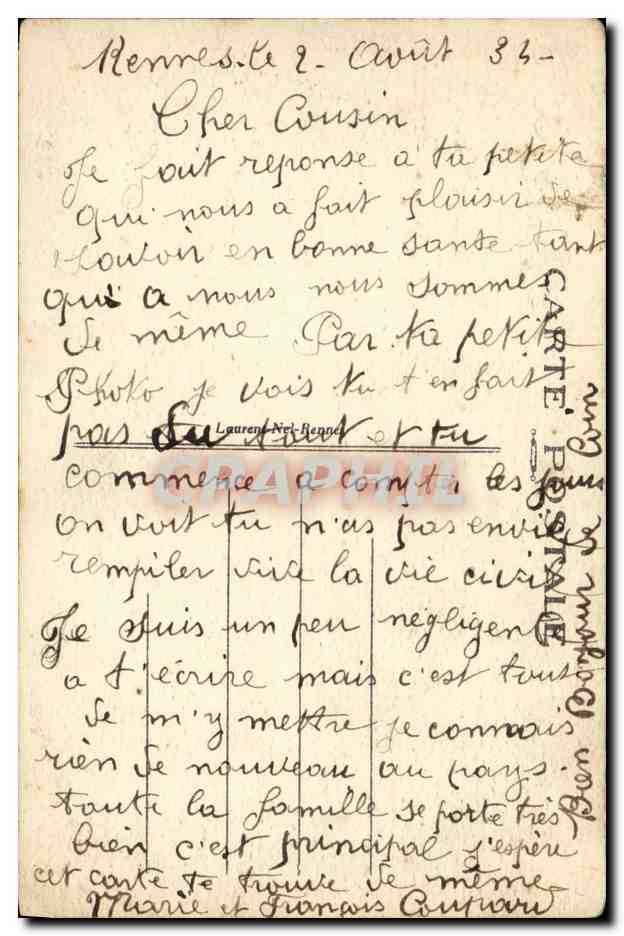 Rennes. le 2 - Août 34 -
Cher Cousin
Je fait reponse a ta petite
qui nous a fait plaisir de
savoir en bonne sante tant
qui a nous nous sommes
de même Par ta petite
Photo je vois tu t'en fait
pas du tout et tu
commence a compte les jours
on voit tu n'as pas envie
rempiler vive la vie civil
Je suis un peu negligent
a t'écrire mais c'est tout
de m'y mettre je connais
rien de nouveau au pays.
toute la famille se porte très
bien c'est principal j'espère
cet carte te trouve de même
Marie et François Coupard
Bien Bonjour de loin
CARTE POSTALE
Laurent-Nel-Rennes
CRAPHIL